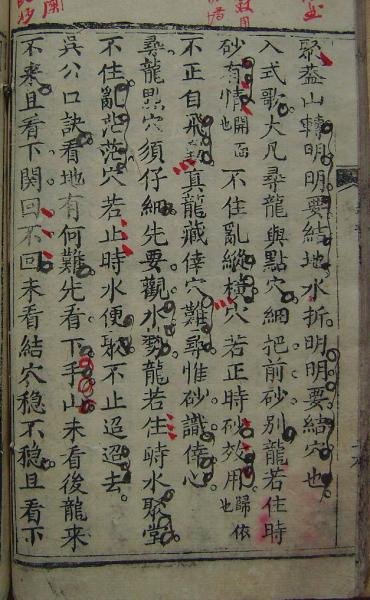 聚葢山轉明明要結地水折明明要結穴也
入式歌大凡尋龍與點穴細把前砂别龍若住時
砂有情開面也不住亂縱橫穴若正時砂效用歸依也
不正自飛真龍藏倖穴難尋惟砂識倖心
尋龍點穴須仔細先要觀水勢龍若住時水聚堂
不住亂茫茫穴若止時水便聚不止迢迢去
吳公口訣看地有何難先看下手山未看後龍來
不來且看下関回不回未看結穴稳不稳且看下